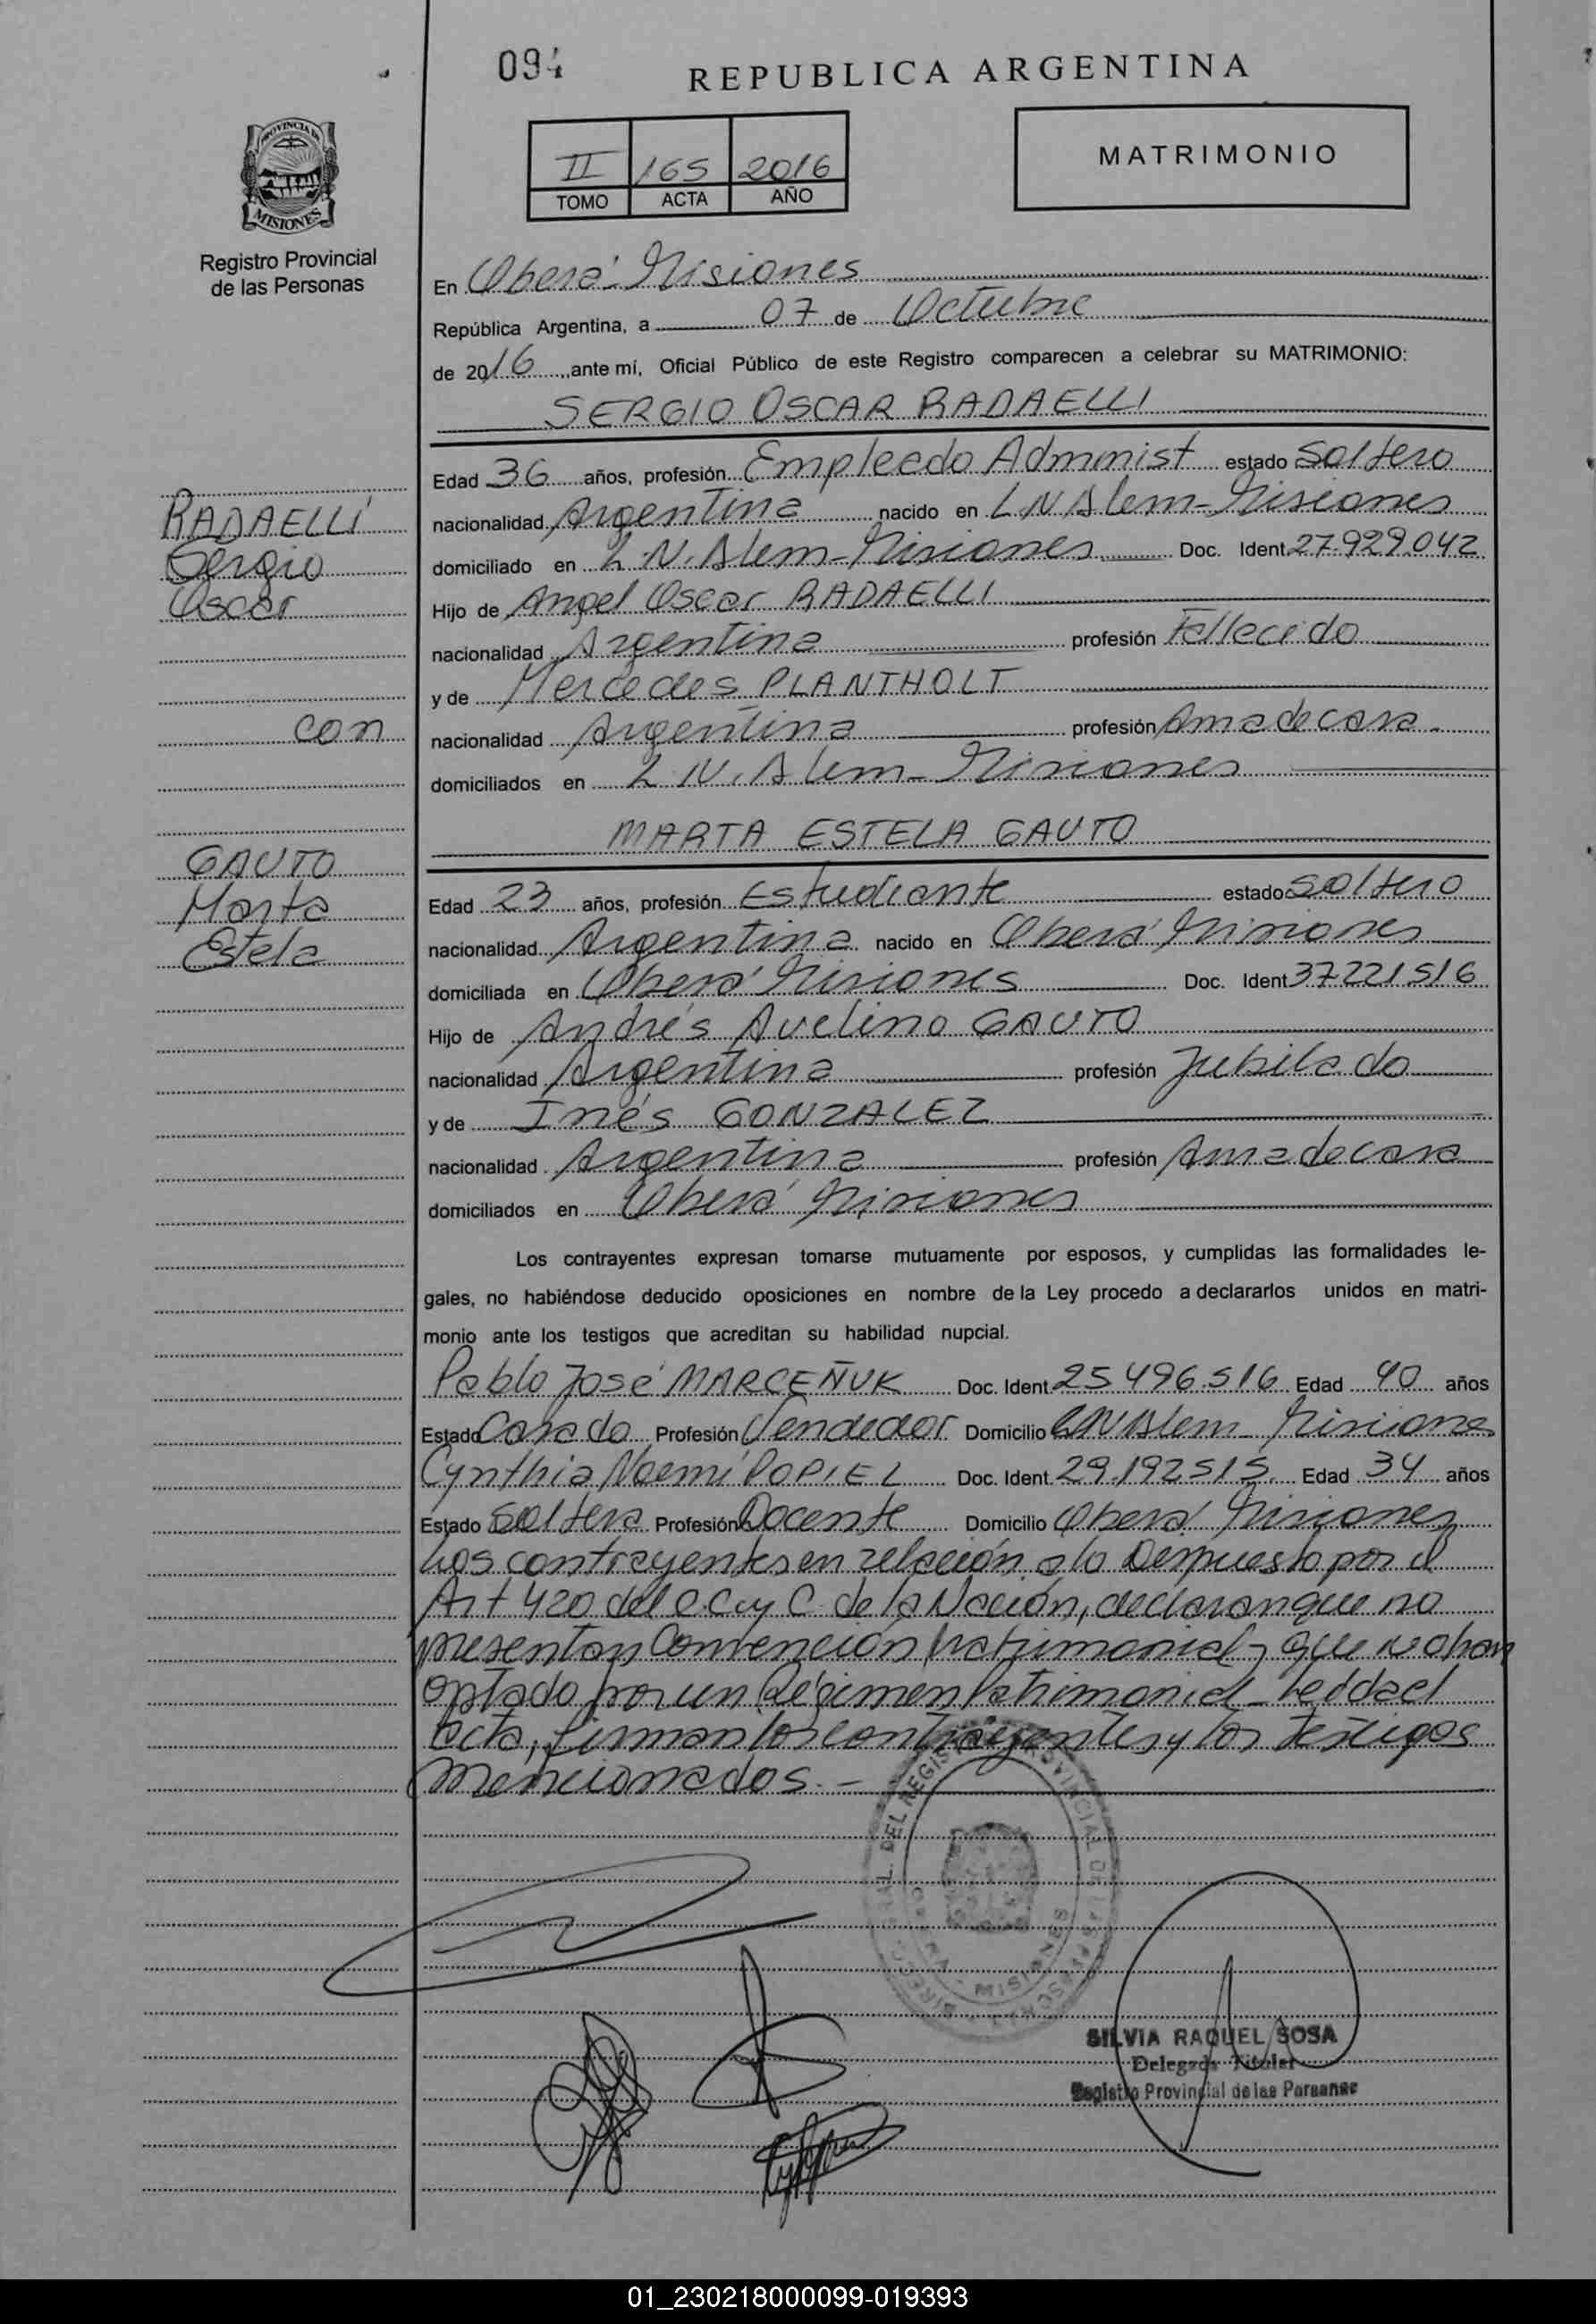 094
REPUBLICA ARGENTINA
PROVINCIA DE
MISIONES
Registro Provincial
de las Personas
II 165 2016
TOMO ACTA AÑO
MATRIMONIO
En Oberá Misiones
República Argentina, a 07 de Octubre
de 2016, ante mí, Oficial Público de este Registro comparecen a celebrar su MATRIMONIO:
SERGIO OSCAR RADAELLI
Edad 36 años, profesión Empleado Administ estado soltero
nacionalidad Argentina nacido en L N Alem - Misiones
domiciliado en L. N. Alem - Misiones Doc. Ident 27.929.042
Hijo de Angel Oscar RADAELLI
nacionalidad Argentina profesión Fallecido
y de Mercedes PLANTHOLT
nacionalidad Argentina profesión Ama de casa.
domiciliados en L. N. Alem - Misiones
RADAELLI
Sergio
Oscar
con
GAUTO
Marta
Estela
MARTA ESTELA GAUTO
Edad 23 años, profesión Estudiante estado soltero
nacionalidad Argentina nacido en Oberá Misiones
domiciliada en Oberá Misiones Doc. Ident 37221516
Hijo de Andrés Avelino GAUTO
nacionalidad Argentina profesión Jubilado
y de Inés GONZALEZ
nacionalidad Argentina profesión Ama de casa
domiciliados en Oberá Misiones
Los contrayentes expresan tomarse mutuamente por esposos, y cumplidas las formalidades le-
gales, no habiéndose deducido oposiciones en nombre de la Ley procedo a declararlos unidos en matri-
monio ante los testigos que acreditan su habilidad nupcial.
Pablo José MARCEÑUK Doc. Ident 25496.516 Edad 40 años
Estado Casado Profesión Vendedor Domicilio LN Alem - Misiones
Cynthia Noemí POPIEL Doc. Ident. 29.192515 Edad 34 años
Estado Soltera Profesión Docente Domicilio Oberá Misiones
Los contrayentes en relación a lo Dispuesto por el
Art 420 del C.C y C. de la Nación, declaran que no
presentan Convención Matrimonial y que no han
optado por un Régimen Patrimonial - Leída el
acta, firman los contrayentes y los testigos
mencionados. -
MISIONES
SILVIA RAQUEL SOSA
Delegada Titular
Registro Provincial de las Personas
01_230218000099-019393